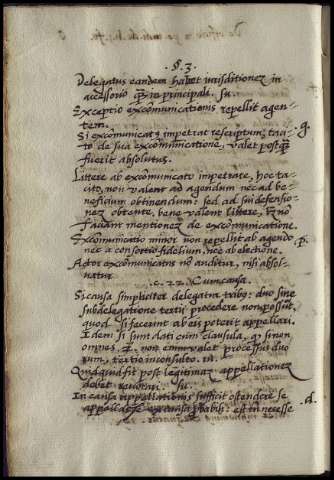 .§.3.
Delegatus eandem habet iurisditionez in
accessorio q̃z in principali. su.
Exceptio excõmunicationis repellit agen-
tem.
Si excõmunicatꝯ impetrat rescriptum, taci-
to de sua excõmunicatione, valet postq̃z
fuerit absolutus.
Littere ab excõmunicato impetrate, hoc ta-
cito, non valent ad agendum nec ad be-
neficium obtinendum: sed ad sui defensio-
nez obtente, bene valent littere,
faciant mentionez de excõmunicatione.
Excõmunicatio minor non repellit ab agendo
nec a consortio fidelium, nec ab electione.
Actor excõmunicatus nõ auditur, nisi absol-
uatur.
.c. 22. Cum causa.
Si causa simpliciter delegatur tribꝯ: duo sine
subdelegatione tertii procedere non possũt,
quod si fecerint ab eis poterit appellari.
Idem si sunt dati cum clausula, q̃ si non
omnes
rum, tertio inconsulto. in.
Quidquid fit post legitimaz appellationez
debet reuocari. su.
In causa appellationis sufficit ostendere se
appellasse ex causa ꝓbabili: est tñ necesse
.d.